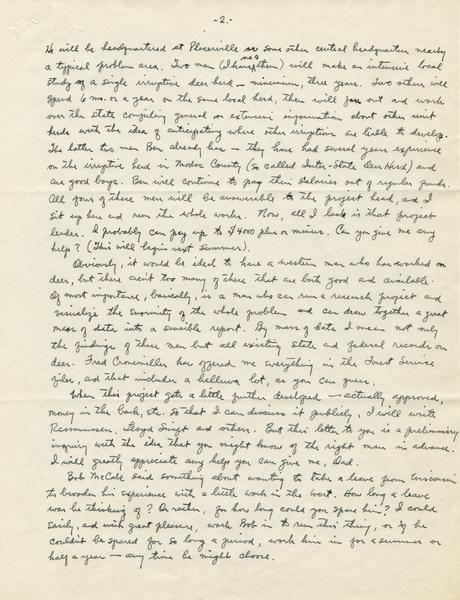 -2-
He will be headquartered at Placerville or some other central headquarters nearby
a typical problem area. Two men (I have them) will make an intensive local
study of a single irruptive deer herd — minimum, three years. Two others will
spend 6 mo. or a year on the same local herd, then will fan out and work
over the state compiling general or extensive information about other unit
herds with the idea of anticipating where other irruptions are liable to develop.
The latter two men Ben already has — they have had several years experience
on the irruptive herd in Modoc County (so called Inter-State Deer Herd) and
are good boys. Ben will continue to pay their salaries out of regular funds.
All four of these men will be answerable to the project head, and I
sit up here and run the whole works. Now, all I lack is that project
leader. I probably can pay up to $4000 plus or minus. Can you give me any
help? (This will begin next summer).
Obviously, it would be ideal to have a western man who has worked on
deer, but there ain't too many of these that are both good and available.
Of most importance, basically, is a man who can run a research project and
visualize the enormity of the whole problem and can draw together a great
mass of data into a sensible report. By mass of data I mean not only
the findings of these men but all existing state and federal records on
deer. Fred has offered me everything in the Forest Service
files, and that includes a helluva lot, as you can guess.
When this project gets a little further developed — actually approved,
money in the bank, etc. so that I can discuss it publicly, I will write
Rasmussen, Lloyd Swift and others. But this letter to you is a preliminary
inquiry with the idea that you might know of the right man in advance.
I will greatly appreciate any help you can give me, Dad.
Bob McCabe said something about wanting to take a leave from Wisconsin
to broaden his experience with a little work in the west. How long a leave
was he thinking of? Or rather, for how long could you spare him? I could
easily, and with great pleasure, work Bob in to run this thing, or if he
couldn't be spared for so long a period, work him in for a summer or
half a year — any time he might choose.